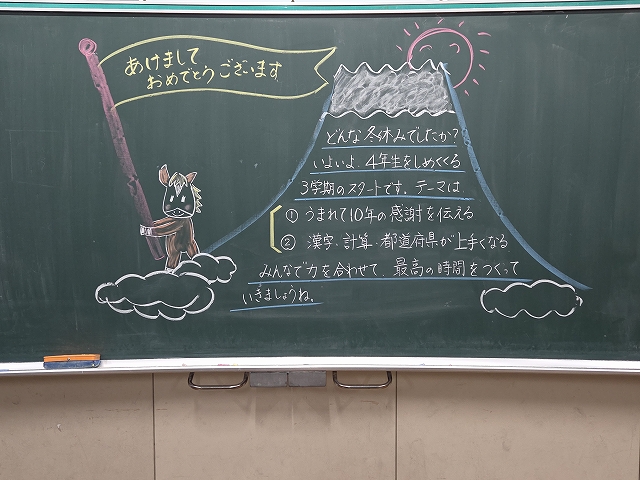 あけまして
おめでとうございます
どんな冬休みでしたか?
いよいよ、4年生をしめくくる
3学期のスタートです。テーマは、
① うまれて10年の感謝を伝える
② 漢字・計算・都道府県が上手くなる
みんなで力を合わせて、最高の時間をつくって
いきましょうね。